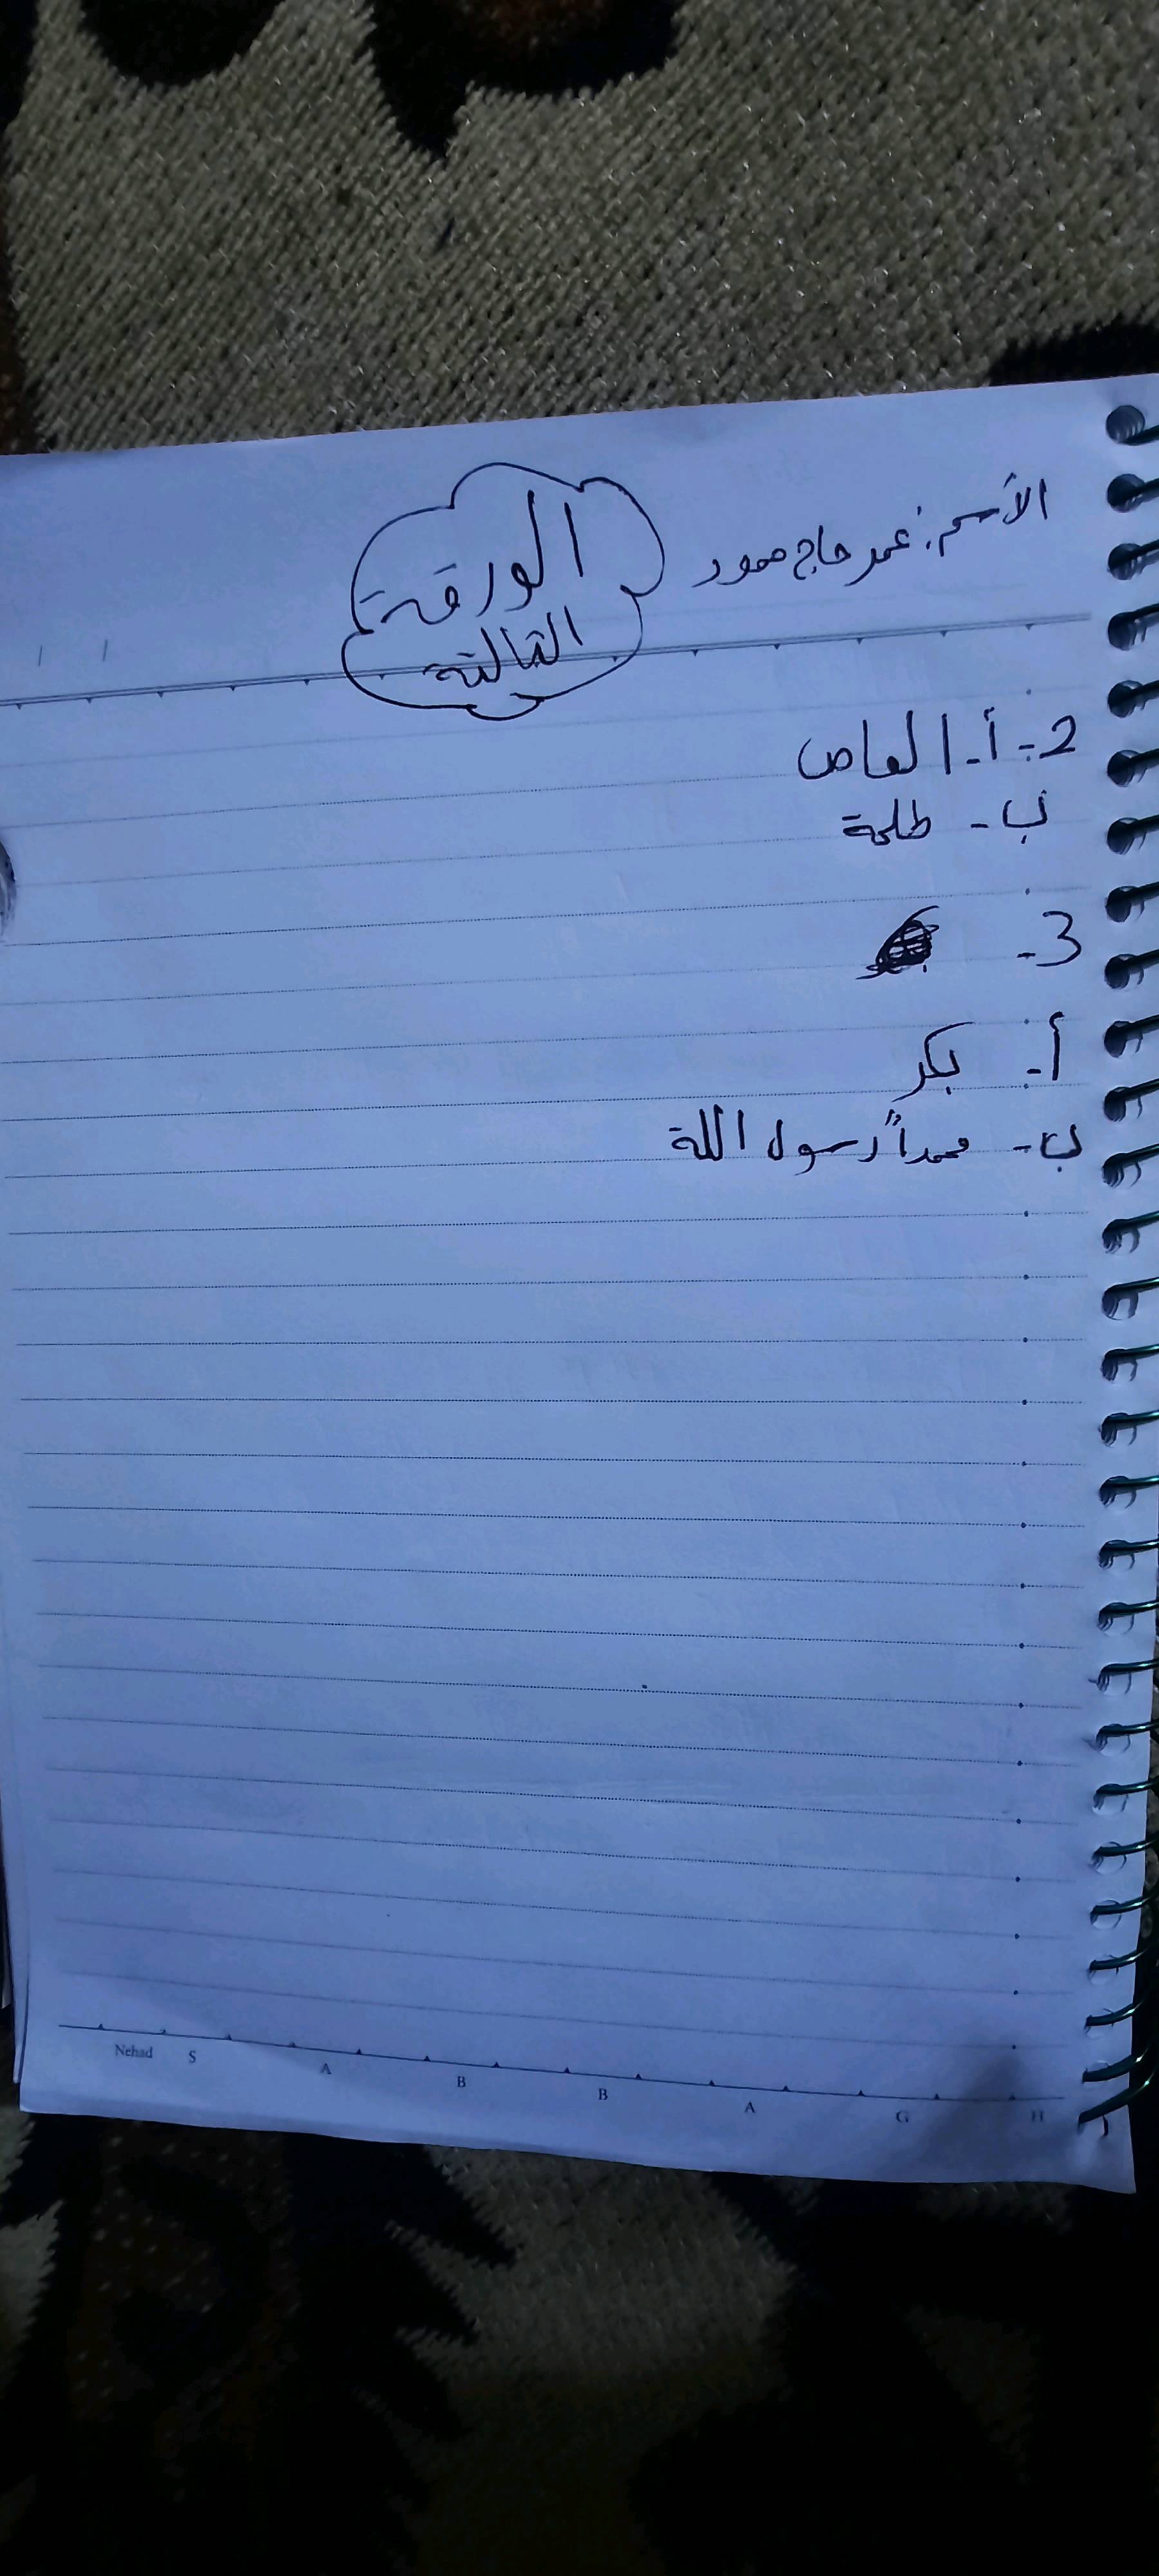 الأسم: عمر حاج حمود
الورقة
الثالثة
2- أ- العاص
ب- طلحة
3-
أ- بكر
ب- محمداً رسول اللة
Nehad S A B B A G H